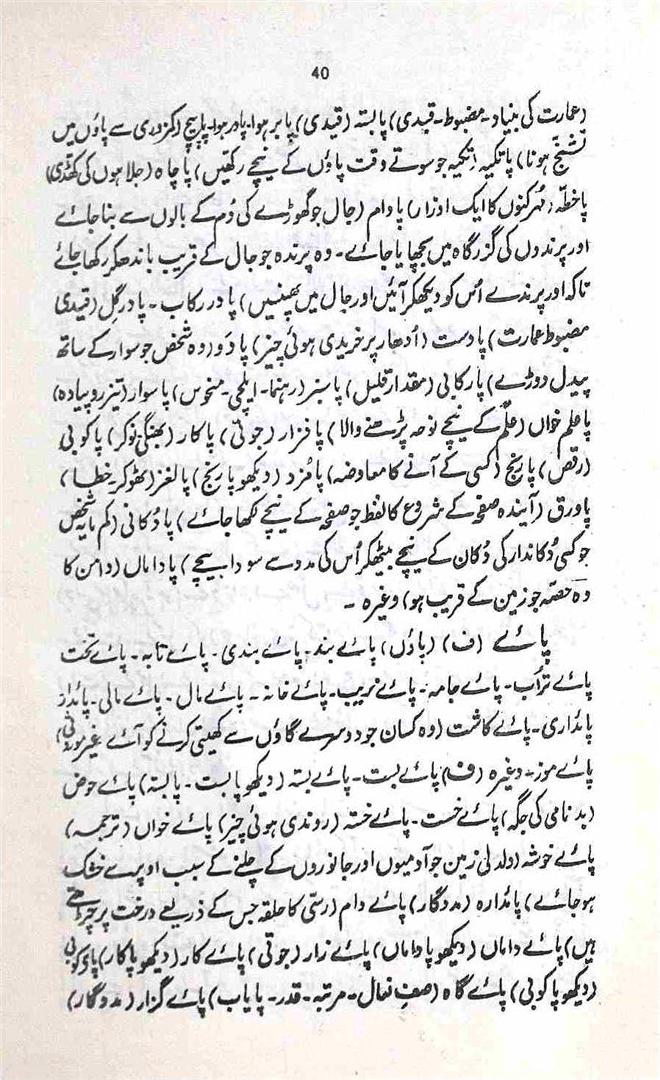 40
(عمارت کی بنیاد۔ مضبوط۔ قیدی) پابستہ (قیدی) پابر ہوا۔ پادر ہوا۔ پاپیچ (کمزوری سے پاؤں میں
تشنّج ہونا) پاتکیہ (تکیہ جو سوتے وقت پاؤں کے نیچے رکھتیں) پاچاہ (جلاہوں کی کھڈی)
پاخطّہ (مُہر کنوں کا ایک اوزار) پادام (جال جو گھوڑے کی دُم کے بالوں سے بنا جائے
اور پرندوں کی گزرگاہ میں بچھایا جائے۔ وہ پرندہ جو جال کے قریب باندھکر رکھا جائے
تاکہ اور پرندے اُس کو دیکھکر آئیں اور جال میں پھنسیں) پادر رکاب۔ پادر گِل (قیدی
مضبوط عمارت) پادست (اُدھار پر خریدی ہوئی چیز) پادَو (وہ شخص جو سوار کے ساتھ
پیدل دوڑے) پارکابی (مقدار قلیل) پاسبز (رہنما۔ ایلچی۔ منحوس) پاسوار (تیز رو پیادہ)
پاعلم خواں (علَم کے نیچے نوحہ پڑھنے والا) پافزار (جوتی) پاکار (بھنگی۔ نوکر) پاکوبی
(رقص) پارنج (کسی کے آنے کا معاوضہ) پامُزد (دیکھو پارنج) پالغز (ٹھوکر۔ خطا)
پاورق (آیندہ صفحے کے شروع کا لفظ جو صفحہ کے نیچے لکھا جائے) پادُکانی (کم مایہ شخص
جو کسی دُکاندار کی دُکان کے نیچے بیٹھکر اُس کی مدد سے سودا بیچے) پاداماں (دامن کا
وہ حصّہ جو زمین کے قریب ہو) وغیرہ ۔
پائے (ف) (پاؤں) پائے بند۔ پائے بندی۔ پائے تابہ۔ پائے تخت
پائے تراب۔ پائے جامہ۔ پائے زیب۔ پائے خانہ۔ پائے مال۔ پائے مالی۔ پائدار
پائداری۔ پائے کاشت (وہ کسان جو دوسرے گاؤں سے کھیتی کرنے کو آئے غیر موروثی)
پائے موز۔ وغیرہ (ف) پائے بست۔ پائے بستہ (دیکھو پابست۔ پابستہ) پائے حوض
(بدنامی کی جگہ) پائے خست۔ پائے خستہ (روندی ہوئی چیز) پائے خواں (ترجمہ)
پائے خوشہ (دلدلی زمین جو آدمیوں اور جانوروں کے چلنے کے سبب اوپر سے خشک
ہو جائے) پائدارہ (مددگار) پائے دام (رسّی کا حلقہ جس کے ذریعے درخت پر چڑھتے
ہیں) پائے داماں (دیکھو پاداماں) پائے زار (جوتی) پائے کار (دیکھو پاکار) پای کوبی
(دیکھو پاکوبی) پائے گاہ (صفِ نعال۔ مرتبہ۔ قدر۔ پایاب) پائے گزار (مددگار)